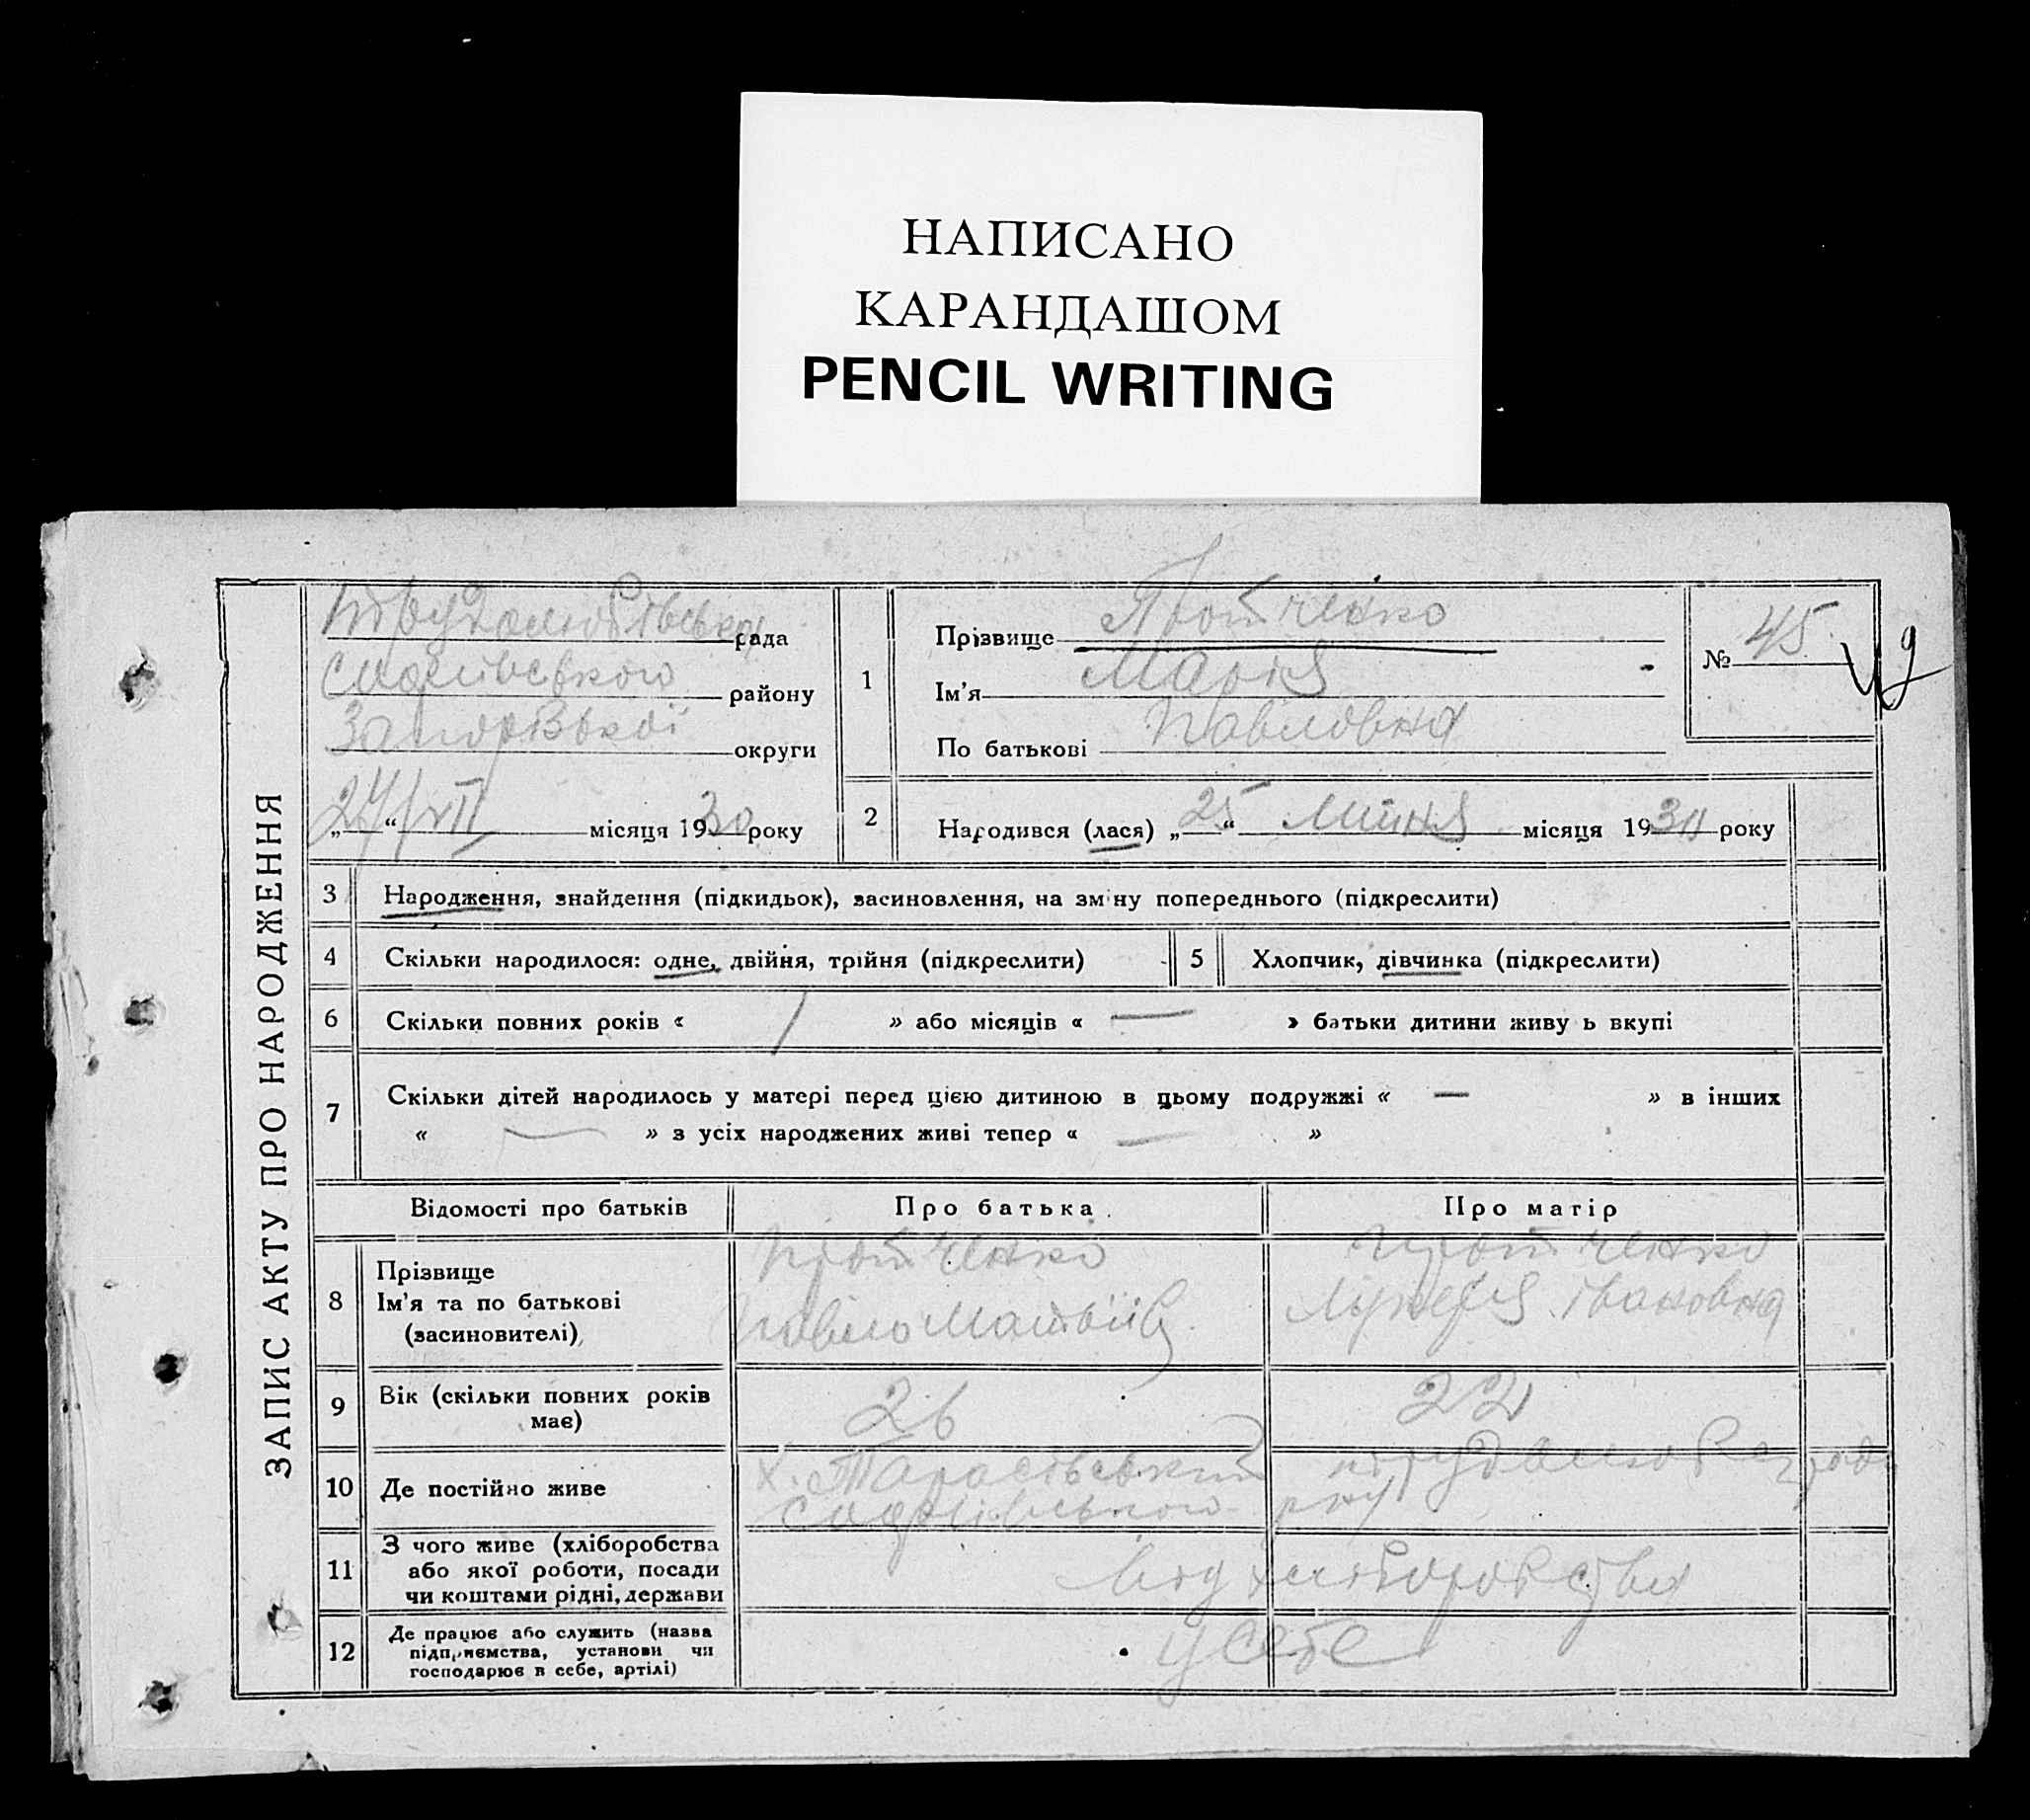 НАПИСАНО
КАРАНДАШОМ
PENCIL WRITING
ЗАПИС АКТУ ПРО НАРОДЖЕННЯ
Трудолюбівська рада
Софіївського району
Запорізької округи
„24/VII“ місяця 1930 року
1
Прізвище Протченко
Ім'я Марія
По батькові Павловна
№ 45
2 Народився (лася) „25“ місяця 1930 року
3 Народження, знайдення (підкидьок), засиновлення, на зміну попереднього (підкреслити)
4 Скільки народилося: одне, двійня, трійня (підкреслити) 5 Хлопчик, дівчинка (підкреслити)
6 Скільки повних років « 1 » або місяців « — » батьки дитини живуть вкупі
7 Скільки дітей народилось у матері перед цією дитиною в цьому подружжі « — » в інших
« — » з усіх народжених живі тепер « — »
Відомості про батьків Про батька Про матір
8 Прізвище Протченко Протченко
Ім'я та по батькові Павло Матвіїв Лукерія Івановна
(засиновителі)
9 Вік (скільки повних років 26 22
має)
10 Де постійно живе х. Тарасівський
Софіївського р-ну
11 З чого живе (хліборобства
або якої роботи, посади од хліборобства
чи коштами рідні, держави
12 Де працює або служить (назва
підприємства, установи чи у себе
господарює в себе, артілі)